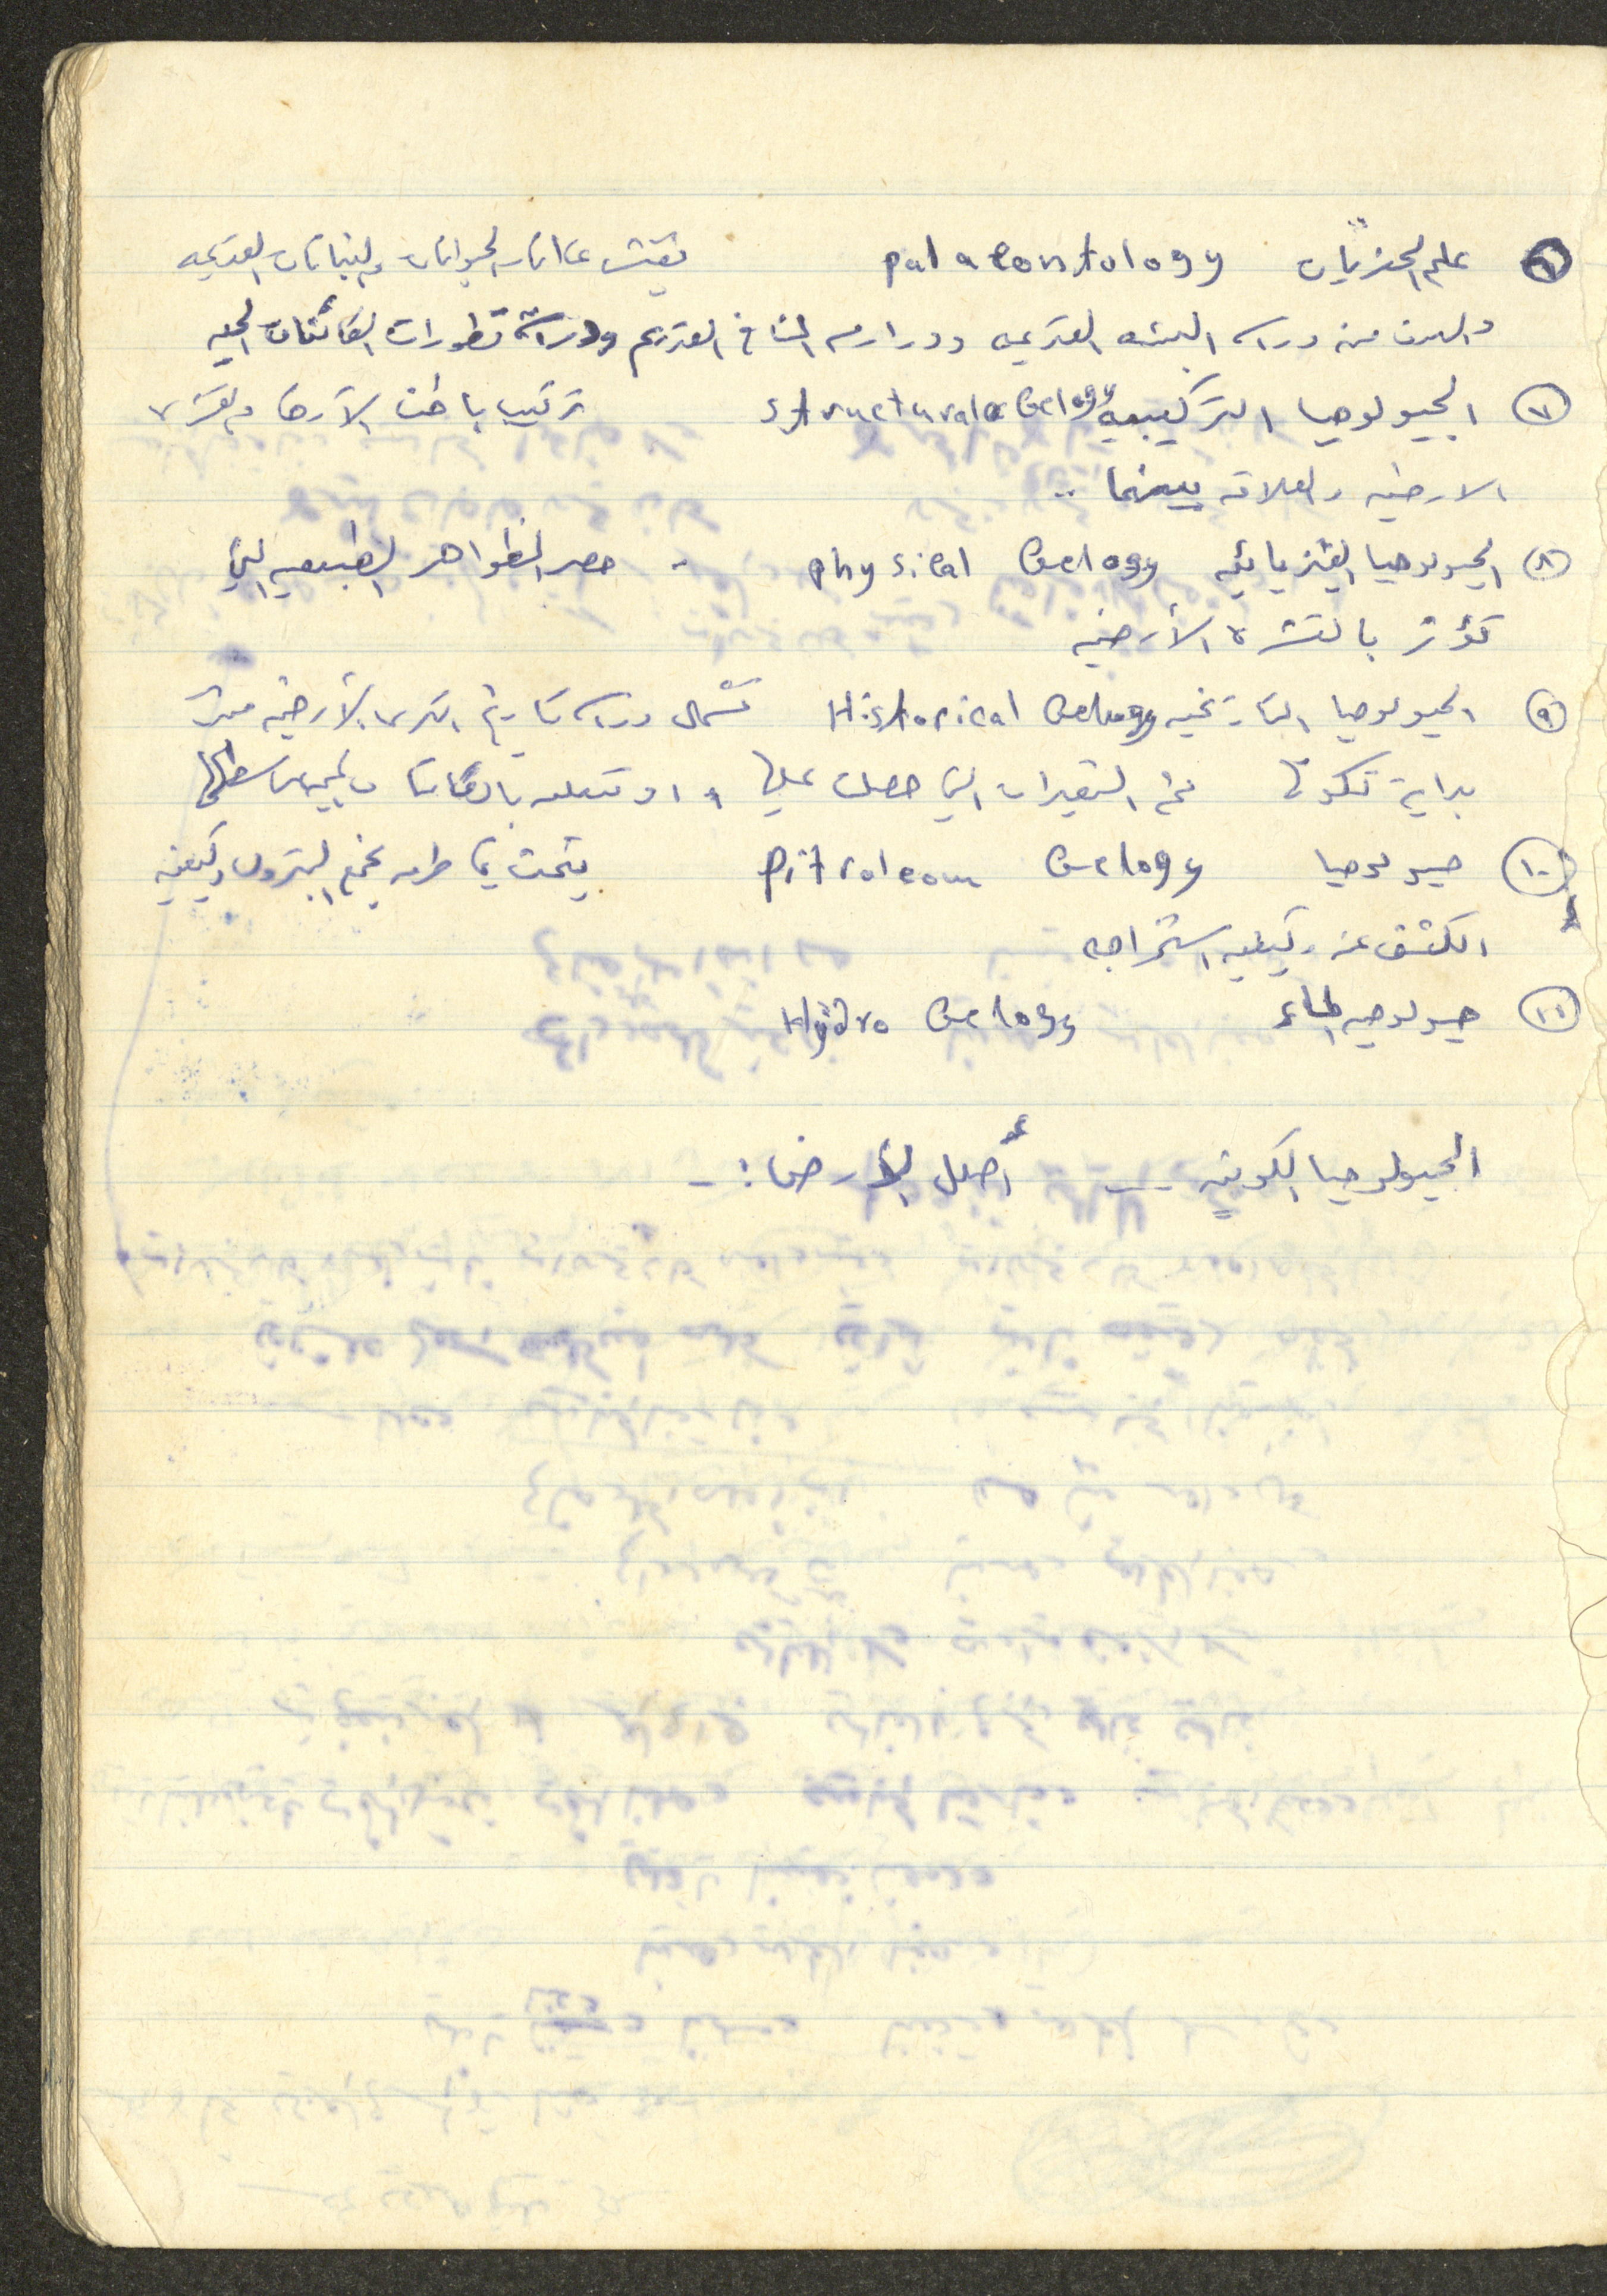 ٦ علم الحفريات palaeontology تفتش عن اثار الحيوانات والنباتات القديمه
والهدف من دراسه البيئه القديمه ودراسه المناخ القديم ودراسة تطورات الكائنات الحيه
٧ الجيولوجيا التركيبيه structural Gelogy تركيب باطن الأرض والقشره
الارضيه والعلاقه بينهما ..
٨ الجيولوجيا الفيزيائيه physical Gelogy - حصر الظواهر الطبيعيه التي
تؤثر بالقشره الأرضيه
٩ الجيولوجيا التاريخيه Historical Gelogy تشمل دراسه تاريخ الكره الأرضيه منذ
بداية تكونها ثم التغيرات التي حصلت عليها
١٠ جيولوجيا Pitroleom Gelogy يبحث في طرق تجمع البترول وكيفيه
الكشف عنه وكيفيه استخراجه
١١ جيولوجيه الماء Hydro Gelogy
الجيولوجيا الكونيه -- أصل الأرض :-